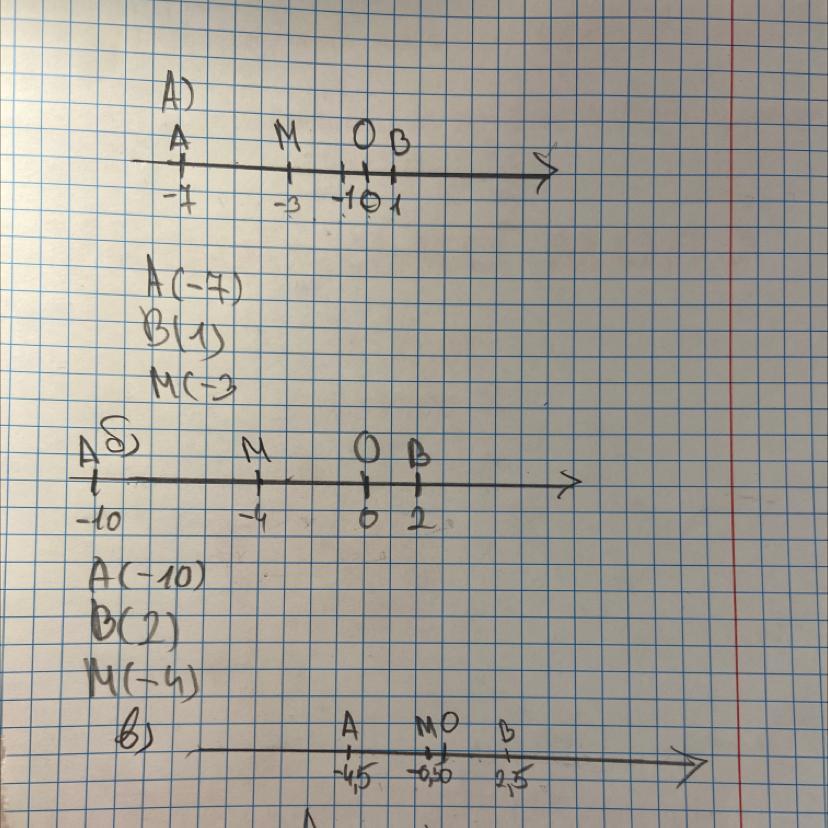 А)
A M O B
-7 -3 -1 0 1
A(-7)
B(1)
M(-3
б)
A M O B
-10 -4 0 2
A(-10)
B(2)
M(-4)
в)
A M O B
-4,5 -0,5 0 2,5